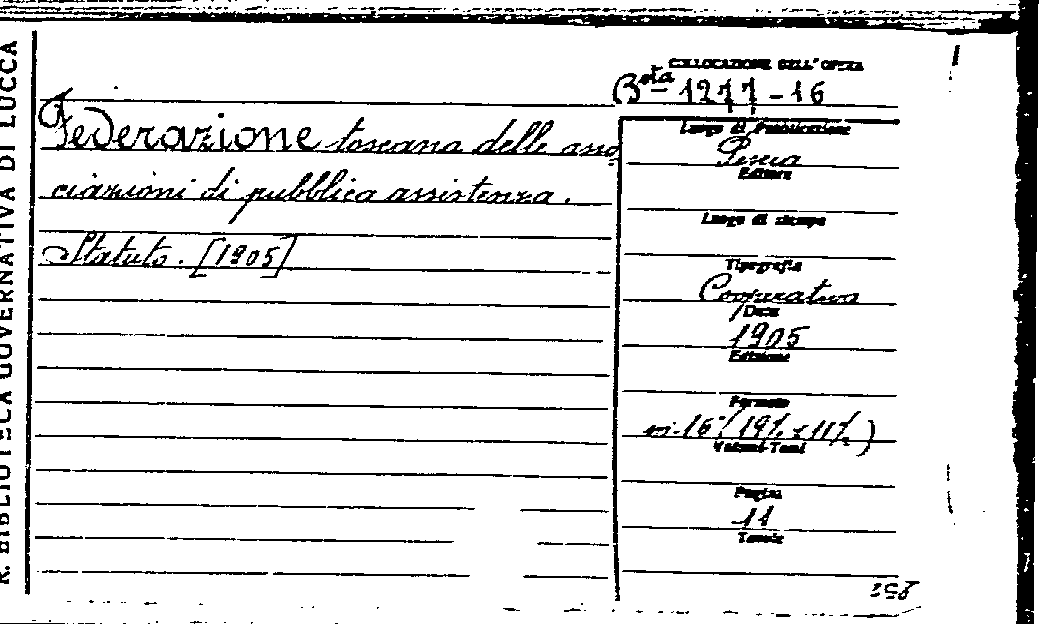 R. BIBLIOTECA GOVERNATIVA DI LUCCA
COLLOCAZIONE DELL'OPERA
Bsta 1277-16
Federazione toscana delle asso
ciazioni di pubblica assistenza.
Statuto. [1905]
Luogo di Pubblicazione
Pescia
Editore
Luogo di stampa
Tipografia
Cooperativa
Data
1905
Edizione
Formato
in-16°
Volumi-Tomi
Pagine
11
Tavole